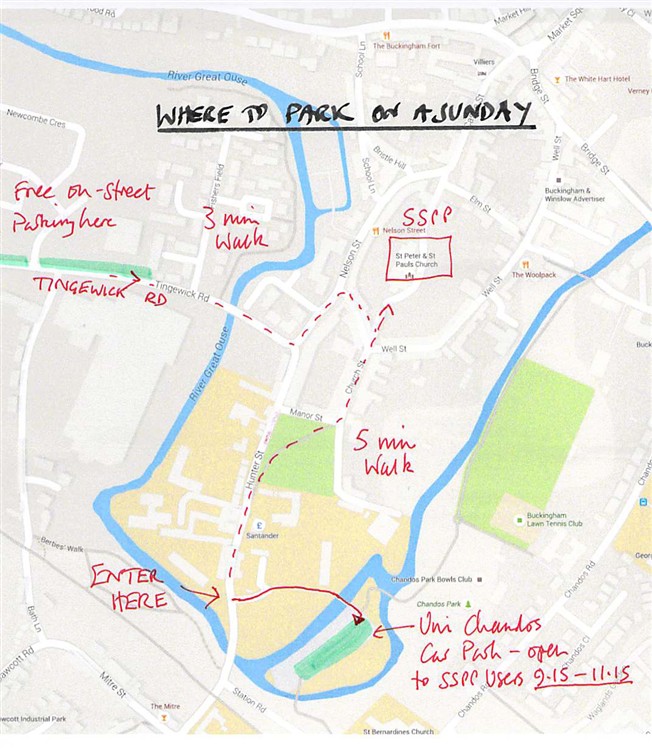 od Rd
Market Hill
Market Sq
The Buckingham Fort
School Ln
Villiers
Bridge St
The White Hart Hotel
Verney
River Great Ouse
WHERE TO PARK ON A SUNDAY
Newcombe Cres
Bristle Hill
School Ln
Well St
Bridge St
Fishers Field
Free on-street
Parking here
3 min
Walk
Elm St
Buckingham &
Winslow Advertiser
SSPP
Nelson Street
Nelson St
St Peter & St
Pauls Church
The Woolpack
Well St
TINGEWICK RD
Tingewick Rd
River Great Ouse
Well St
Church St
Buck
Manor St
5 min
Walk
Hunter St
Santander
Buckingham
Lawn Tennis Club
Berties' Walk
Georg
Chandos Rd
ENTER
HERE
Chandos Park Bowls Club
Chandos Park
Bath Ln
Uni Chandos
Car Park - open
to SSPP Users 9.15-11.15
awcott Rd
Mitre St
Station Rd
The Mitre
awcott Industrial Park
St Bernardines Church